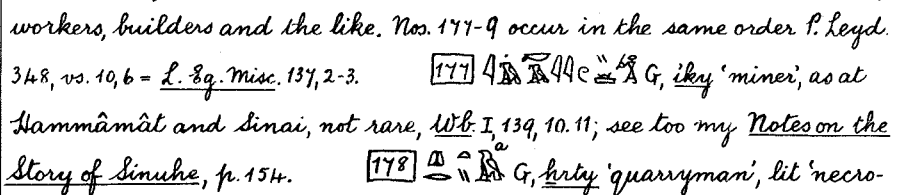 workers, builders and the like. Nos. 177-9 occur in the same order P. Leyd.
348, vs. 10, 6 = L. Eg. Misc. 137, 2-3. 177 G, iky 'miner', as at
Hammâmât and Sinai, not rare, Wb. I, 139, 10. 11; see too my Notes on the
Story of Sinuhe, p. 154. 178 a G, ẖrty 'quarryman', lit 'necro-